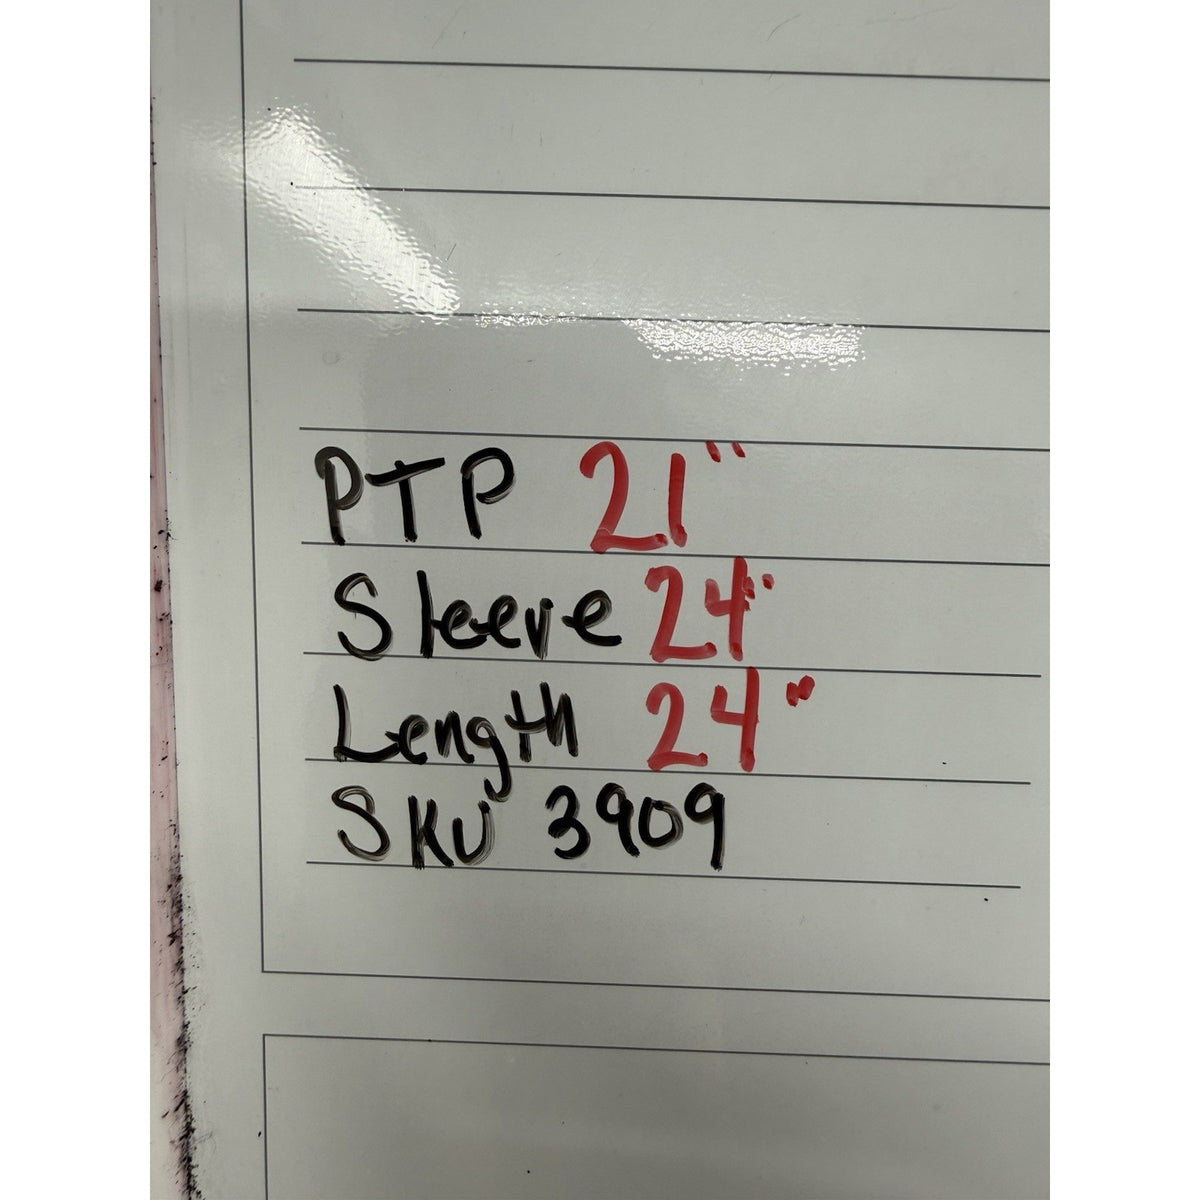 PTP 21"
Sleeve 24"
Length 24"
SKU 3909